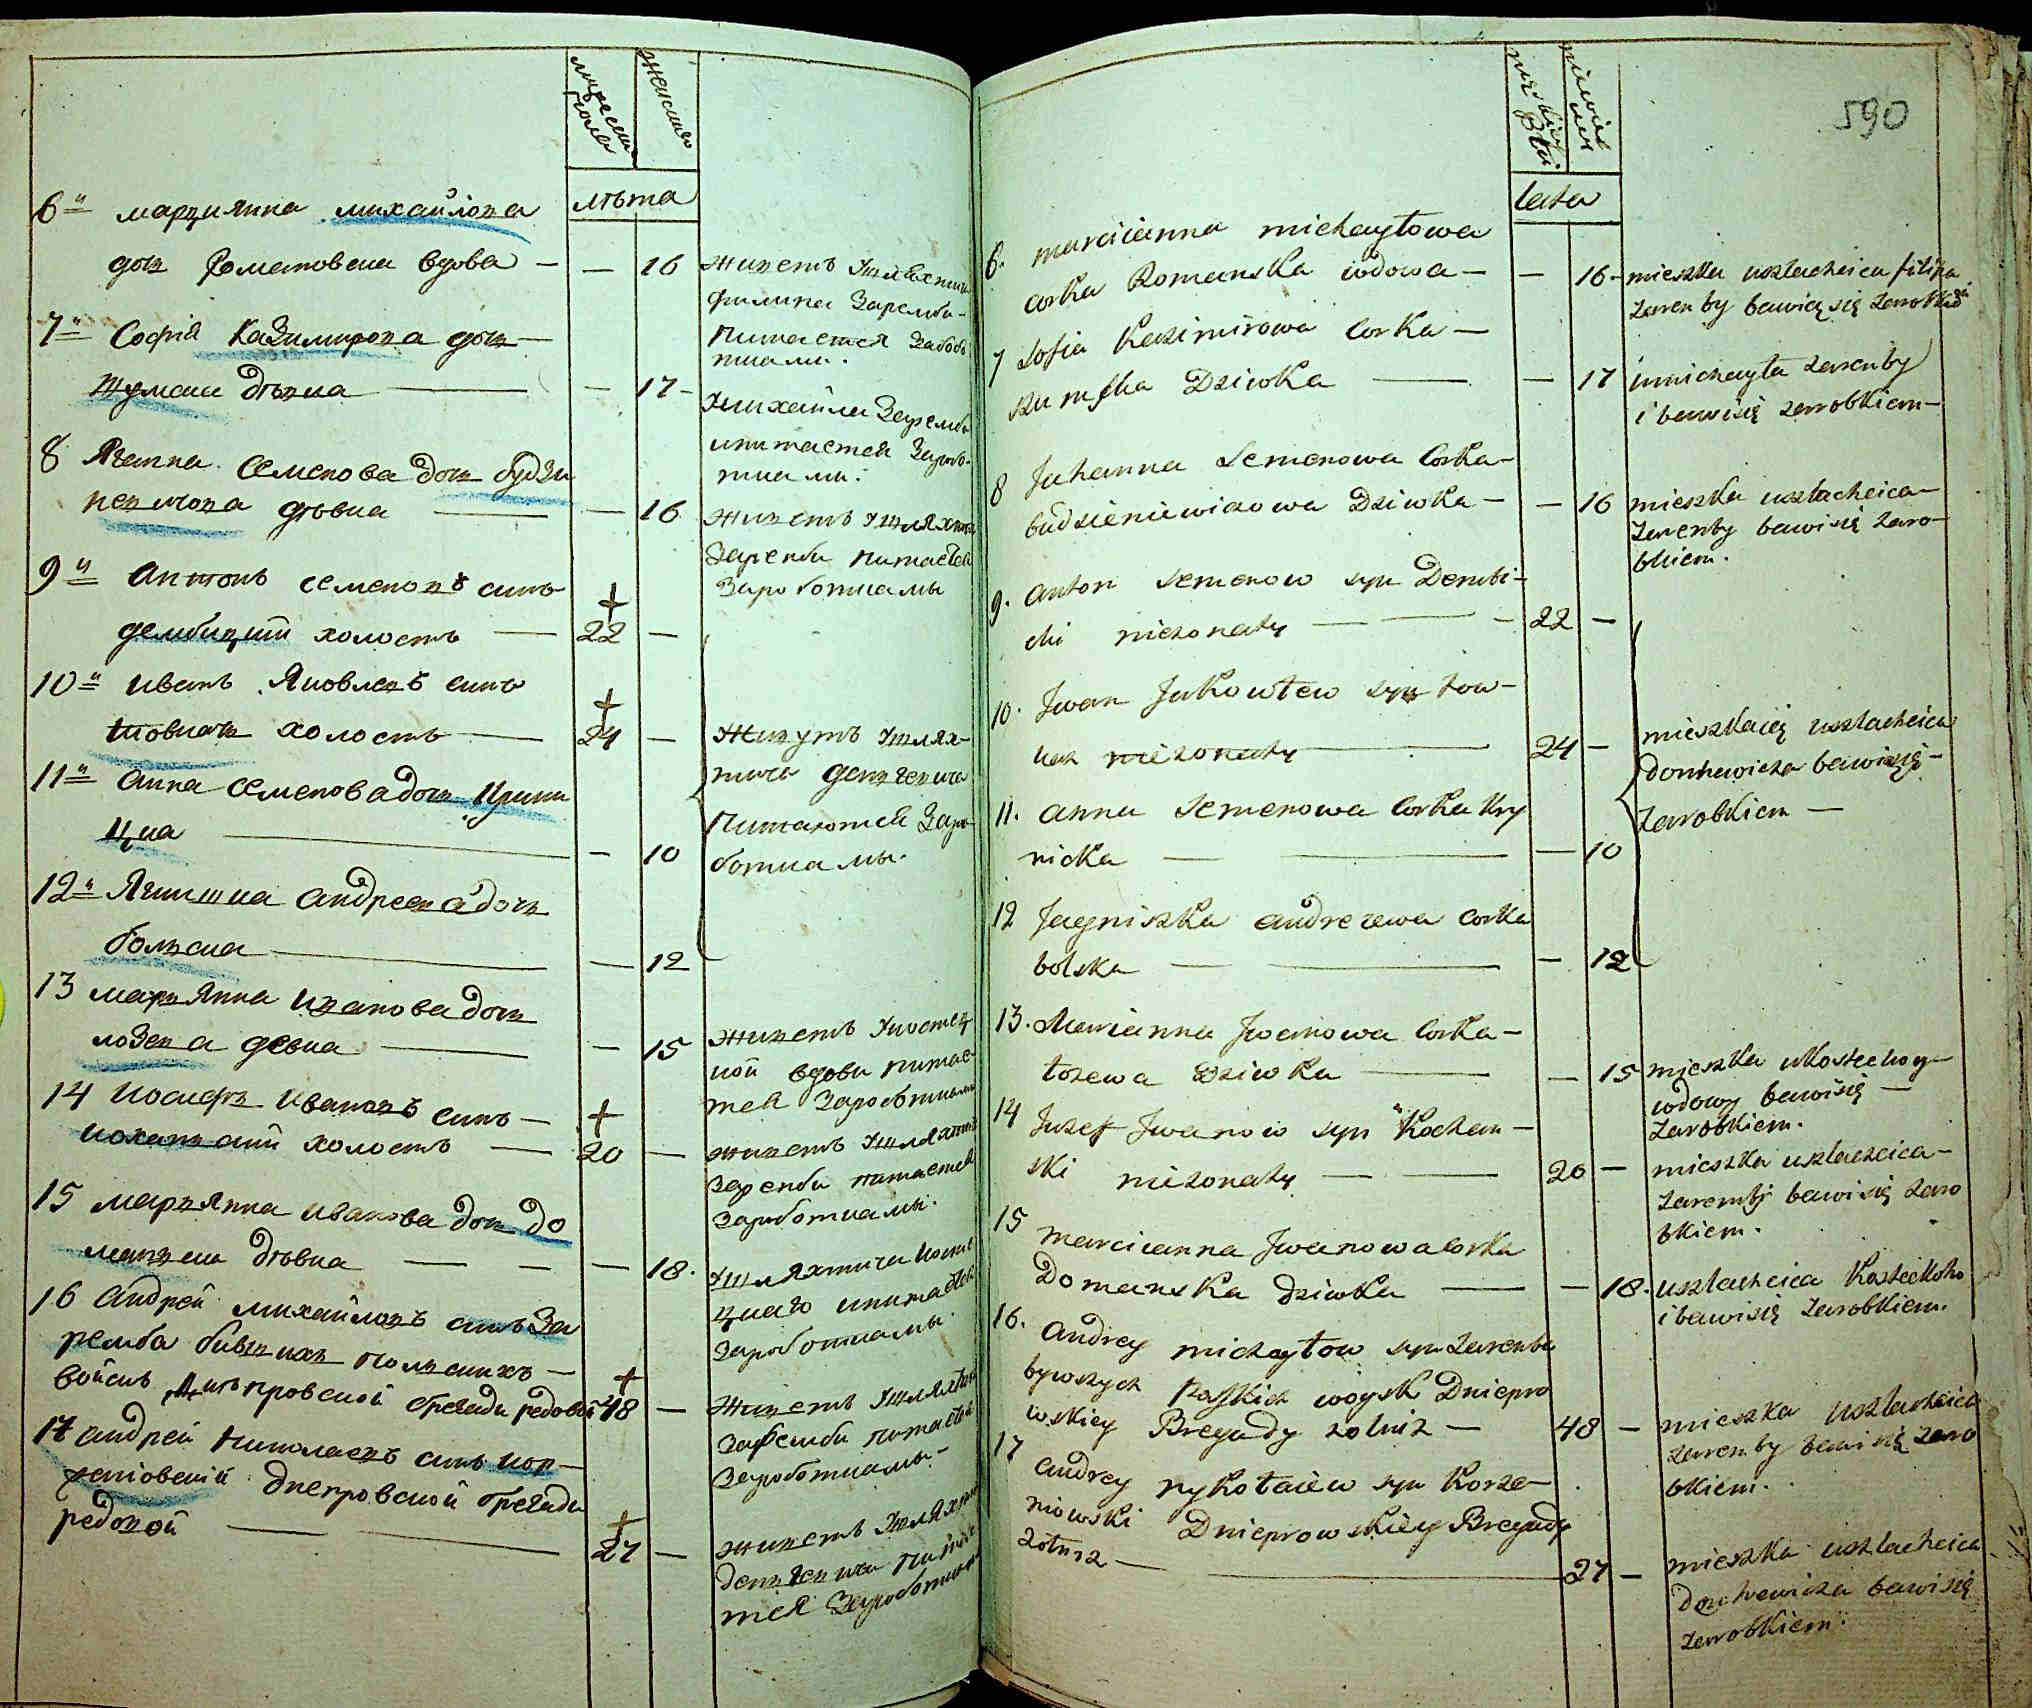 мужеска
пола
женска
лѣта
6й марциянна михайлова
доч Романовска вдова — — 16
живетъ Ушляхтича
филипа Заремби
питается Заробо
тками.
7й Софія Казимирова доч —
Жумска дѣвка — — 17 —
Умихайла Заремби
ипитается Зарабо
тками.
8 Яганна Семенова доч будзи
невичова дѣвка — — 16
живетъ Ушляхтича
Заренби питается
Заработками
9й Антонъ семеновъ синъ
дембицкий холостъ — 22 —
10й иванъ Яковлевъ синъ
товкачъ холостъ — 24 —
11й Анна Семенова доч Крини
цка — — 10
12й Ягнишка андреева доч
больска — — 12
Живутъ Ушлях-
тича
Питаются Зара
ботками.
13 марьянна иванова доч
лозева девка — — 15
живетъ Укостец
кой вдови питае
тся Заработками
14 иосифъ ивановъ синъ — +
коханский холостъ — 20 —
живетъ Ушляхтича
Заренби питается
Заработками.
15 марьянна иванова доч До
манска дѣвка — — — 18.
Ушляхтича косте
цкаго ипитается
Заработками.
16 андрей михайловъ синъ За
ремба бившихъ польскихъ —
войскъ Днѣпровской бригади редовой 48 —
живетъ Ушляхтича
Заремби питается
Заработками —
17 андрей николаевъ синъ кор-
жениовский днепровской бригади
редовой — — 27 —
живетъ Ушляхтича
питае
тся Заработками
590
lata
6. marcicanna michayłowa
corka Romanska wdowa — — 16 —
mieszka uszlachcica filipa
Zaremby bawię się zarobkiem
7 Zofia Kazimirowa Corka —
Dziwka — — 17
umichayła zarenby
i bawi się zarobkiem —
8 Juhanna Semenowa Corka —
budzieniewiczowa Dziwka — — 16
mieszka uszlachcica —
Zarenby bawi się zaro-
bkiem.
9. anton semenow syn Dembi-
cki niezonaty — — — 22 —
10. Jwan Jakowlew syn tow-
kacz niezonaty — 24 —
11. anna Semenowa Corka Kry
nicka — — — 10
12 Jagniszka andrezewa corka
bolska — — — 12
mieszkaią uszlachcica
donhewicza bawią się —
zarobkiem —
13. Marianna Jwanowa Corka —
łozewa Dziwka — — 15
mieszka ukosteckoy —
wdowy bawi się —
zarobkiem.
14 Juzef Jwanow syn Kochan —
ski niezonaty — — 20 —
mieszka uszlachcica —
Zaremby bawi się zaro
bkiem.
15 marcicanna Jwanowa Corka
Domanska dziwka — — 18.
uszlachcica Kosteckoho
i bawi się zarobkiem.
16. andrey michayłow syn zaremba
bywszych Polskich woysk Dniepro
wskiey Bregady zolniz — 48 —
mieszka uszlachcica
zaremby bawi się zaro
bkiem.
17 andrey nykołaiew syn Korze-
niowski Dnieprowskiey Bregady
zolniz — — 27 —
mieszka uszlachcica
donhewicza bawi się
zarobkiem.